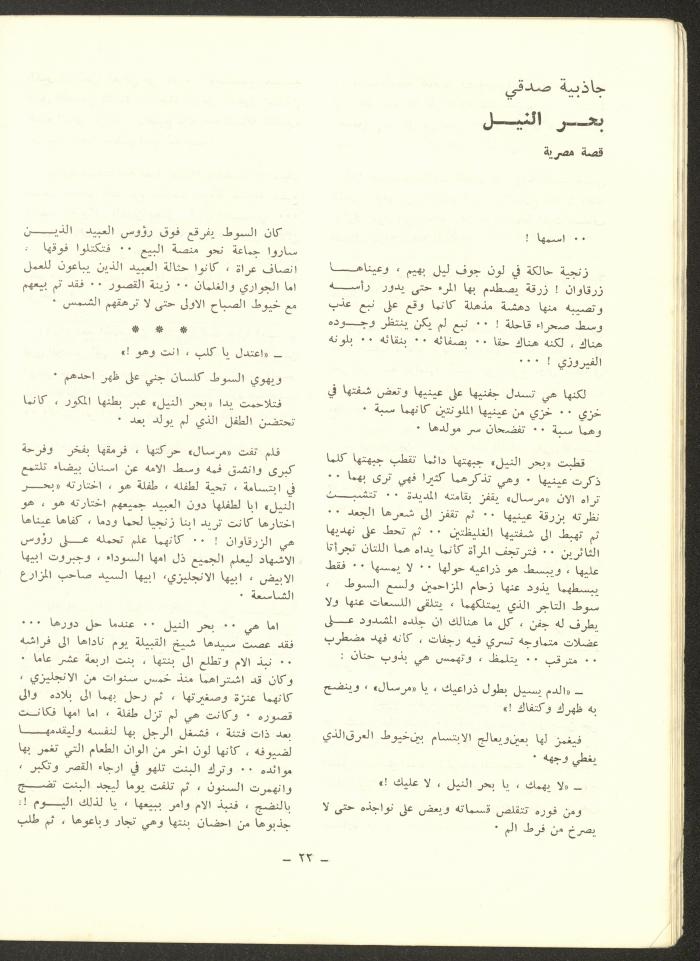 جاذبية صدقي
بحـــر النيـــل
قصة مصرية
٠٠ اسمها !
زنجية حالكة في لون جوف ليل بهيم ، وعيناهـــا
زرقاوان ! زرقة يصطدم بها المرء حتى يدور رأســـه
وتصيبه منها دهشة مذهلة كأنما وقع على نبع عذب
وسط صحراء قاحلة ! ٠٠ نبع لم يكن ينتظر وجـــوده
هناك ، لكنه هناك حقا ٠٠ بصفائه ٠٠ بنقائه ٠٠ بلونه
الفيروزي ! ٠٠٠
لكنها هي تسدل جفنيها على عينيها وتعض شفتها في
خزي ٠٠ خزي من عينيها الملونتين كأنهما سبة ٠
وهما سبة ٠٠ تفضحان سر مولدها ٠
قطبت «بحر النيل» جبهتها دائما تقطب جبهتها كلما
ذكرت عينيها ٠ وهي تذكرهما كثيرا فهي ترى بهما ٠٠
تراه الان «مرسال» يقفز بقامته المديدة ٠٠ تتشبـــث
نظرته بزرقة عينيها ٠٠ ثم تقفز الى شعرها الجعد ٠٠
ثم تهبط الى شفتيها الغليظتين ٠٠ ثم تحط على نهديها
الثائرين ٠٠ فترتجف المرأة كأنما يداه هما اللتان تجرأتا
عليها ، ويبسط هو ذراعيه حولها ٠٠ لا يمسها ٠٠ فقط
يبسطهما يذود عنها زحام المزاحمين ولسع السوط ،
سوط التاجر الذي يمتلكهما ، يتلقى اللسعات عنها ولا
يطرف له جفن ، كل ما هنالك ان جلده المشدود على
عضلات متماوجه تسري فيه رجفات ، كأنه فهد مضطرب
٠٠ مترقب ٠٠ يتلمظ ، وتهمس هي بذوب حنان :
ـ «الدم يسيل بطول ذراعيك ، يا «مرسال» ، وينضح
به ظهرك وكتفاك !»
فيغمز لها بعين ويعالج الابتسام بين خيوط العرق الذي
يغطي وجهه ٠
ـ «لا يهمك ، يا بحر النيل ، لا عليك !»
ومن فوره تتقلص قسماته ويعض على نواجذه حتى لا
يصرخ من فرط الم ٠
كان السوط يفرقع فوق رؤوس العبيد الذيـــن
ساروا جماعة نحو منصة البيع ٠٠ فتكتلوا فوقها :
انصاف عراة ، كانوا حثالة العبيد الذين يباعون للعمل
اما الجواري والغلمان ٠٠ زينة القصور ٠٠ فقد تم بيعهم
مع خيوط الصباح الاولى حتى لا ترهقهم الشمس ٠
* * *
ـ «اعتدل يا كلب ، انت وهو !»
ويهوي السوط كلسان جني على ظهر احدهم ٠
فتلاحمت يدا «بحر النيل» عبر بطنها المكور ، كأنما
تحتضن الطفل الذي لم يولد بعد ٠
فلم تفت «مرسال» حركتها ، فرمقها بفخر وفرحة
كبرى وانشق فمه وسط الامه عن اسنان بيضاء تلتمع
في ابتسامة ، تحية لطفله ، طفلة هو ، اختارته «بحـــر
النيل» ابا لطفلها دون العبيد جميعهم اختارته هو ، هو
اختارها كانت تريد ابنا زنجيا لحما ودما ، كفاها عيناها
هي الزرقاوان ! ٠٠ كأنهما علم تحمله علـــى رؤوس
الاشهاد ليعلم الجميع ذل امها السوداء ، وجبروت ابيها
الابيض ، ابيها الانجليزي، ابيها السيد صاحب المزارع
الشاسعة ٠
اما هي ٠٠ بحر النيل ٠٠ عندما حل دورها ٠٠٠
فقد عصت سيدها شيخ القبيلة يوم ناداها الى فراشه
٠٠ نبذ الام وتطلع الى بنتها ، بنت اربعة عشر عاما ٠
وكان قد اشتراهما منذ خمس سنوات من الانجليزي ،
كأنهما عنزة وصغيرتها ، ثم رحل بهما الى بلاده والى
قصوره ٠ وكانت هي لم تزل طفلة ، اما امها فكانـــت
بعد ذات فتنة ، فشغل الرجل بها لنفسه وليقدمهـــا
لضيوفه ، كأنها لون اخر من الوان الطعام التي تغمر بها
موائده ٠٠ وترك البنت تلهو في ارجاء القصر وتكبر ،
وانهمرت السنون ، ثم تلفت يوما ليجد البنت تضـــج
بالنضج ، فنبذ الام وامر ببيعها ، يا لذلك اليـــوم !
جذبوها من احضان بنتها وهي تجار وباعوها ، ثم طلب
ـ ٢٢ ـ